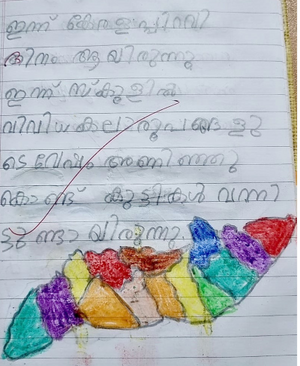 ഇന്ന് കേരളപ്പിറവി
ദിനം ആയിരുന്നു
ഇന്ന് സ്കൂളിൽ
വിവിധ കലാരൂപങ്ങളു
ടെ വേഷം അണിഞ്ഞു
കൊണ്ട് കുട്ടികൾ വന്നി
ട്ടുണ്ടായിരുന്നു